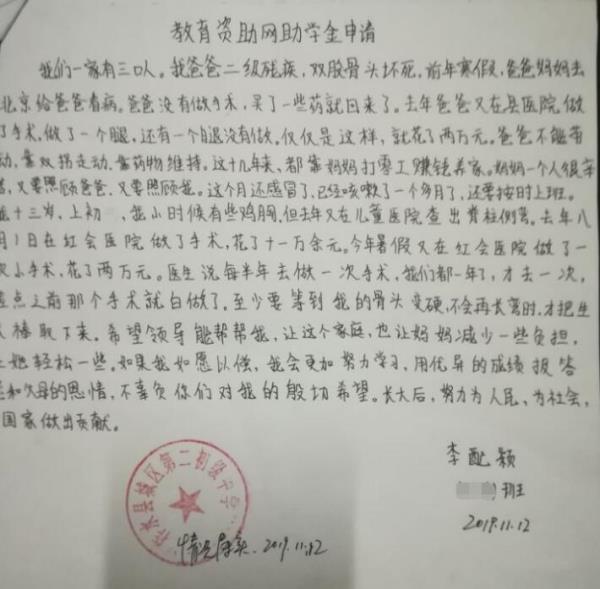 教育资助网助学金申请
我们一家有三口人。我爸爸二级残疾，双股骨头坏死。前年寒假，爸爸妈妈去
北京给爸爸看病。爸爸没有做手术，买了一些药就回来了。去年爸爸又在县医院做
了手术。做了一个腿，还有一个腿没有做。仅仅是这样，就花了两万元。爸爸不能劳
动，靠双拐走动，靠药物维持。这十几年来，都靠妈妈打零工赚钱养家。妈妈一个人很辛
苦，又要照顾爸爸，又要照顾我。这个月还感冒了，已经咳嗽了一个多月了，还要按时上班。
我十三岁，上初，我小时候有些鸡胸，但去年又在儿童医院查出脊柱侧弯。去年八
月1日在红会医院做了手术，花了十一万余元。今年暑假又在红会医院做了一
次小手术，花了两万元。医生说每半年去做一次手术，我们都一年了，才去一次，
差点之前那个手术就白做了。至少要等到我的骨头变硬，不会再长弯时，才把生
长棒取下来。希望领导能帮帮我，让这个家庭，也让妈妈减少一些负担，
让她轻松一些。如果我如愿以偿，我会更加努力学习，用优异的成绩报答
和父母的恩情，不辜负你们对我的殷切希望。长大后，努力为人民、为社会、
国家做出贡献。
李配颖
班
2019.11.12
水县城区第二初级中学
情况属实. 2019.11.12